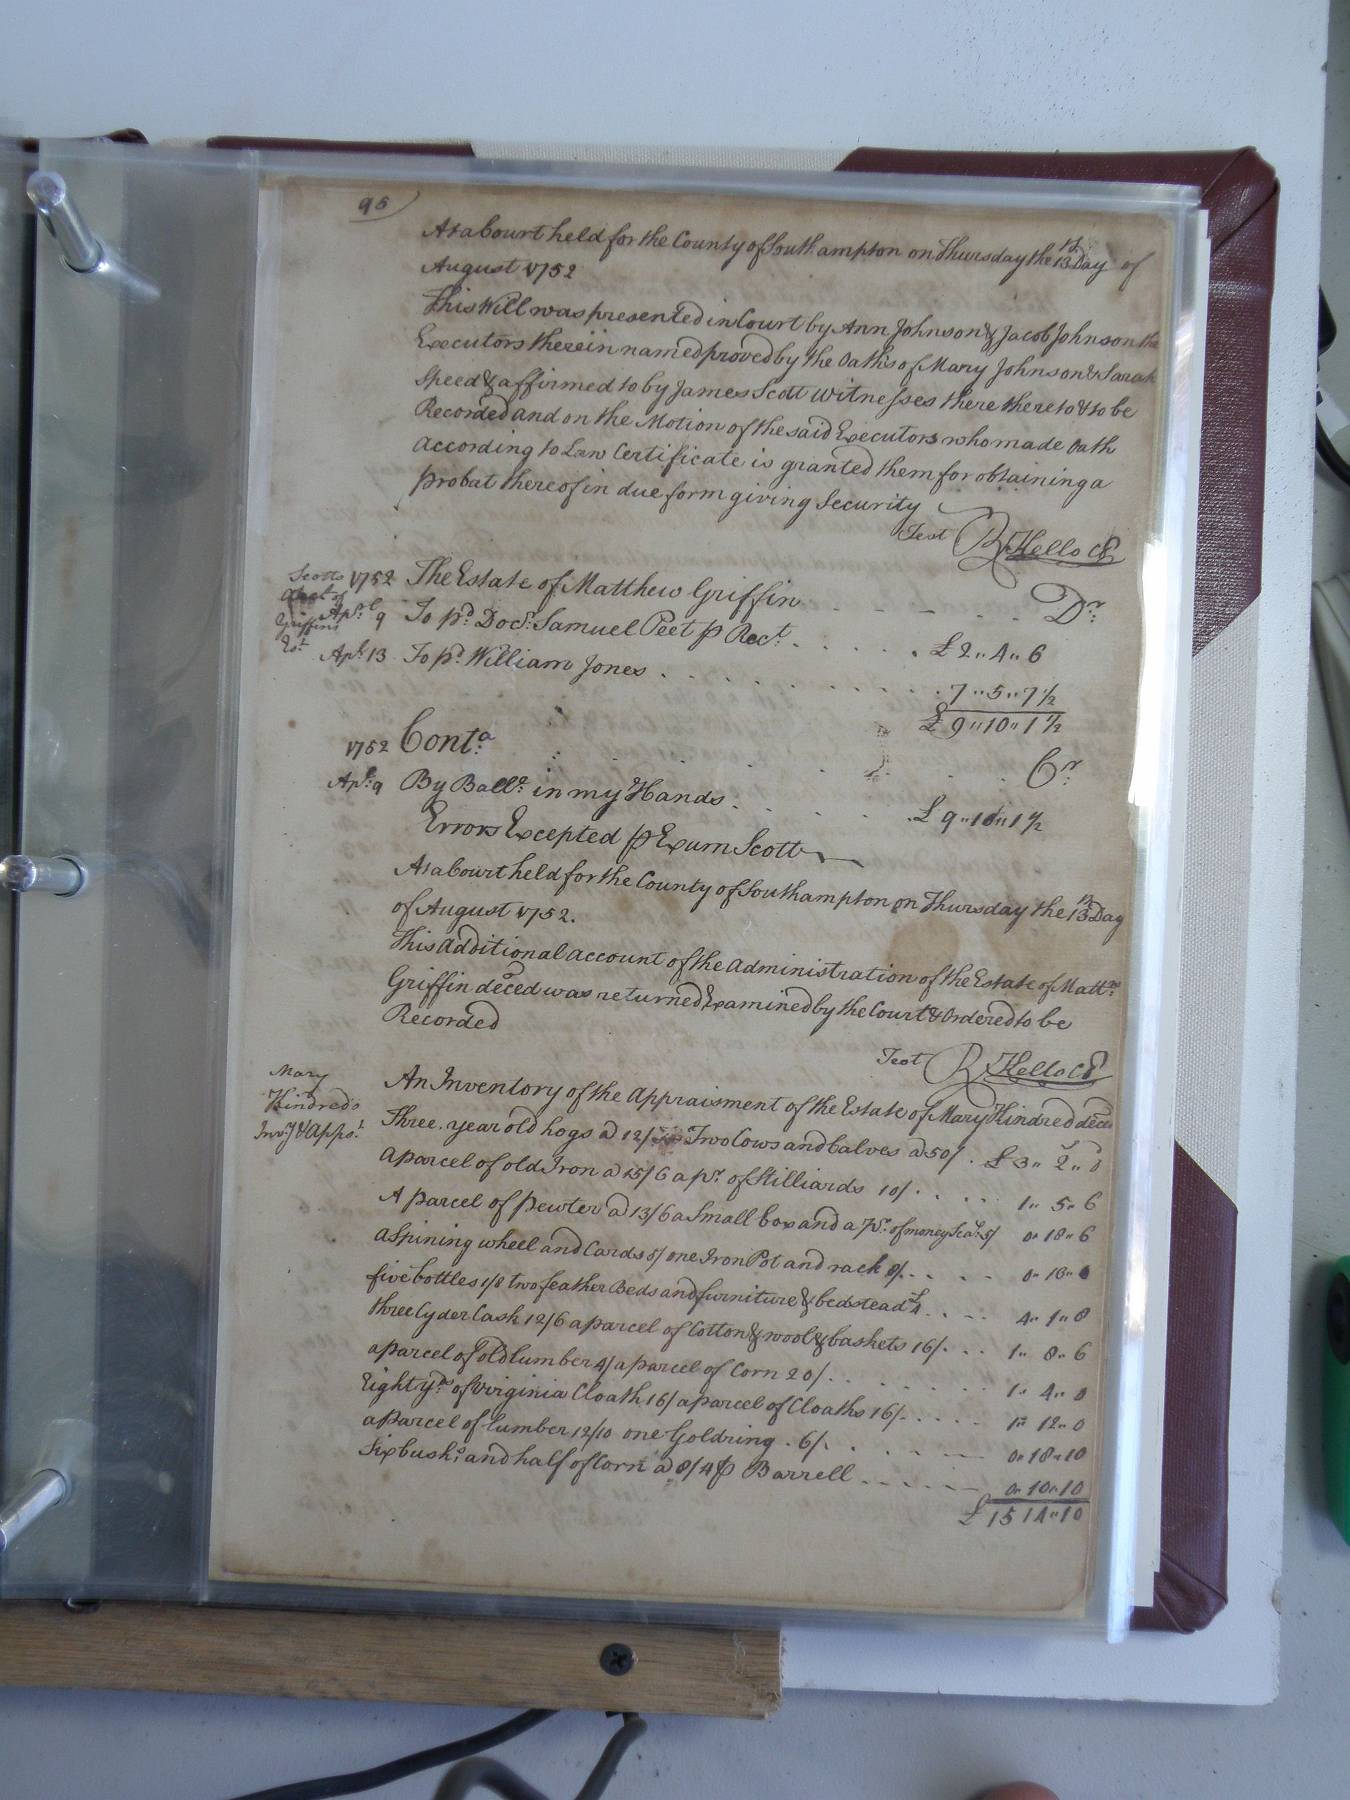 96
At a Court held for the County of Southampton on Thursday the 13th Day of
August 1752
This Will was presented in Court by Ann Johnson & Jacob Johnson the
Executors therein named proved by the Oaths of Mary Johnson & Sarah
Speed & affirmed to by James Scott Witnesses there thereto & to be
Recorded and on the Motion of the said Executors who made Oath
According to Law Certificate is granted them for obtaining a
Probat thereof in due form giving Security
Test R Kello C
Scotts
Acct of
Griffins
Est
1752 The Estate of Matthew Griffin Dr.
Apr. 9 To pd. Docr. Samuel Peet p Rect. £ 2 " 4 " 6
Apl. 13 To pd. William Jones 7 " 5 " 7 1/2
£ 9 " 10 " 1 1/2
1752 Conta. Cr.
Apl. 9 By Balla. in my Hands £ 9 " 10 " 1 1/2
Errors Excepted p Exum Scott
At a Court held for the County of Southampton on Thursday the 13th Day
of August 1752.
This Additional account of the Administration of the Estate of Mattw.
Griffin deced was returned Examined by the Court & Ordered to be
Recorded
Test R Kello C
Mary
Kindred's
Invy & Appt.
An Inventory of the Appraisment of the Estate of Mary Kindred deced
Three year old hogs a 12/ Two Cows and Calves a 50/ £ 3 " 2 " 0
A parcel of old Iron a 15/6 a pr. of Stilliards 10/ 1 " 5 " 6
A parcel of pewter a 13/6 a Small box and a pr. of money Scals 5/ 0 " 18 " 6
a Spining wheel and Cards 5/ one Iron Pot and rack 8/
five bottles 1/8 two feather Beds and furniture & bedstead £4 4 " 1 " 8
three Cyder Cask 12/6 a parcel of Cotton & wool & baskets 16/ 1 " 8 " 6
a parcel of old lumber 4/ a parcel of Corn 20/ 1 " 4 " 0
Eight yds of Virginia Cloath 16/ a parcel of Cloaths 16/ 1 " 12 " 0
a parcel of lumber 12/10 one Gold ring 6/ 0 " 18 " 10
Six bushs. and half of Corn a 8/4 p Barrell 0 " 10 " 10
£ 15 14 " 10